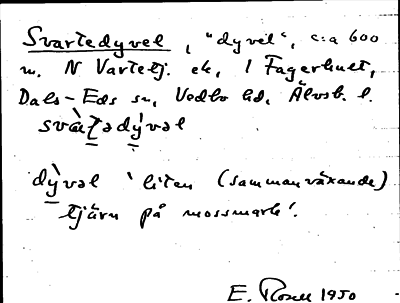 Svartedyvel, "dyvel", c:a 600
m. N Vartetj. ek, 1 Fagerhult,
Dals-Eds sn, Vedbo hd, Älvsb. l.
svàʈədy̍vəl
dy̍vəl 'liten (sammanväxande)
tjärn på mossmark'.
E. Rosell 1950